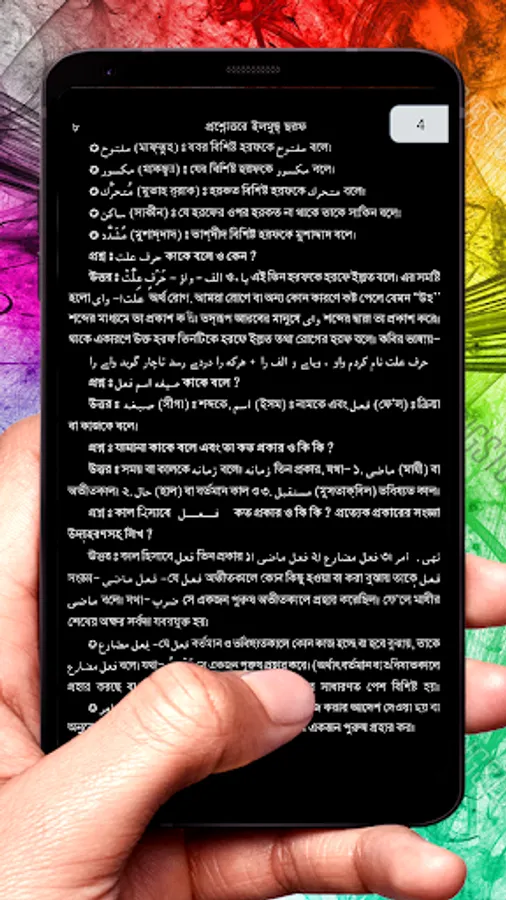 4
৮ প্রশ্নোত্তরে ইলমুছ্ ছরফ
✪ مفتوح (মাফ্তুহ) : যবর বিশিষ্ট হরফকে مفتوح বলে।
✪ مكسور (মাকছূর) : যের বিশিষ্ট হরফকে مكسور বলে।
✪ مُتحرّك (মুতাহ্ র্রাক) : হরকত বিশিষ্ট হরফকে متحرك বলে।
✪ ساكن (সাকীন) : যে হরফের ওপর হরকত না থাকে তাকে সাকিন বলে।
✪ مُشَدَّد (মুশাদ্দাদ) : তাশ্দীদ বিশিষ্ট হরফকে মুশাদ্দাদ বলে।
প্রশ্ন : حرف علت কাকে বলে ও কেন ?
উত্তর : حَرْفِ عِلَّتْ – واؤ – الف ও ياء এই তিন হরফকে হরফে ইল্লত বলে। এর সমষ্টি
হলো واى – علت অর্থ রোগ, আমরা রোগে বা অন্য কোন কারণে কষ্ট পেলে যেমন "উহ"
শব্দের মাধ্যমে তা প্রকাশ তদ্রূপ আরবের মানুষে واى শব্দের দ্বারা তা প্রকাশ করে।
থাকে একারণে উক্ত হরফ তিনটিকে হরফে ইল্লত তথা রোগের হরফ বলে। কবির ভাষায়-
حرف علت نام كردم واو ، وياء و الف را + هركه را دردے رسد ناچار گويد واے را
প্রশ্ন : صيغه اسم فعل কাকে বলে ?
উত্তর : صيغه (সীগা) : শব্দকে, اسم (ইসম) : নামকে এবং فعل (ফে'ল) : ক্রিয়া
বা কাজকে বলে।
প্রশ্ন : যামানা কাকে বলে এবং তা কত প্রকার ও কি কি ?
উত্তর : সময় বা কালকে زمانه বলে। زمانه তিন প্রকার, যথা- ১. ماضى (মাযী) বা
অতীতকাল। ২. حال (হাল) বা বর্তমান কাল ও ৩. مستقبل (মুসতাক্ববিল) ভবিষ্যত কাল।
প্রশ্ন : কাল হিসাবে فعل কত প্রকার ও কি কি ? প্রত্যেক প্রকারের সংজ্ঞা
উদাহরণসহ লিখ ?
উত্তর : কাল হিসাবে فعل তিন প্রকার ১। فعل ماضى ২। فعل مضارع ৩। امر نهى،
সংজ্ঞা- فعل ماضى –যে فعل অতীতকালে কোন কিছু হওয়া বা করা বুঝায় তাকে فعل
ماضى বলে। যথা- ضرب সে একজন পুরুষ অতীতকালে প্রহার করেছিল। ফে'লে মাযীর
শেষের অক্ষর সর্বদা যবরযুক্ত হয়।
✪ فعل مضارع –যে فعل বর্তমান ও ভবিষ্যতকালে কোন কাজ হচ্ছে বা হবে বুঝায়, তাকে
فعل مضارع বলে। যথা- সে একজন পুরুষ প্রহার করে। (অর্থাৎ বর্তমান বা ভবিষ্যতকালে
প্রহার করছে বা র সাধারণত পেশ বিশিষ্ট হয়।
✪ امر জ করার আদেশ দেওয়া হয় বা
অনু এ একজন পুরুষ প্রহার কর।